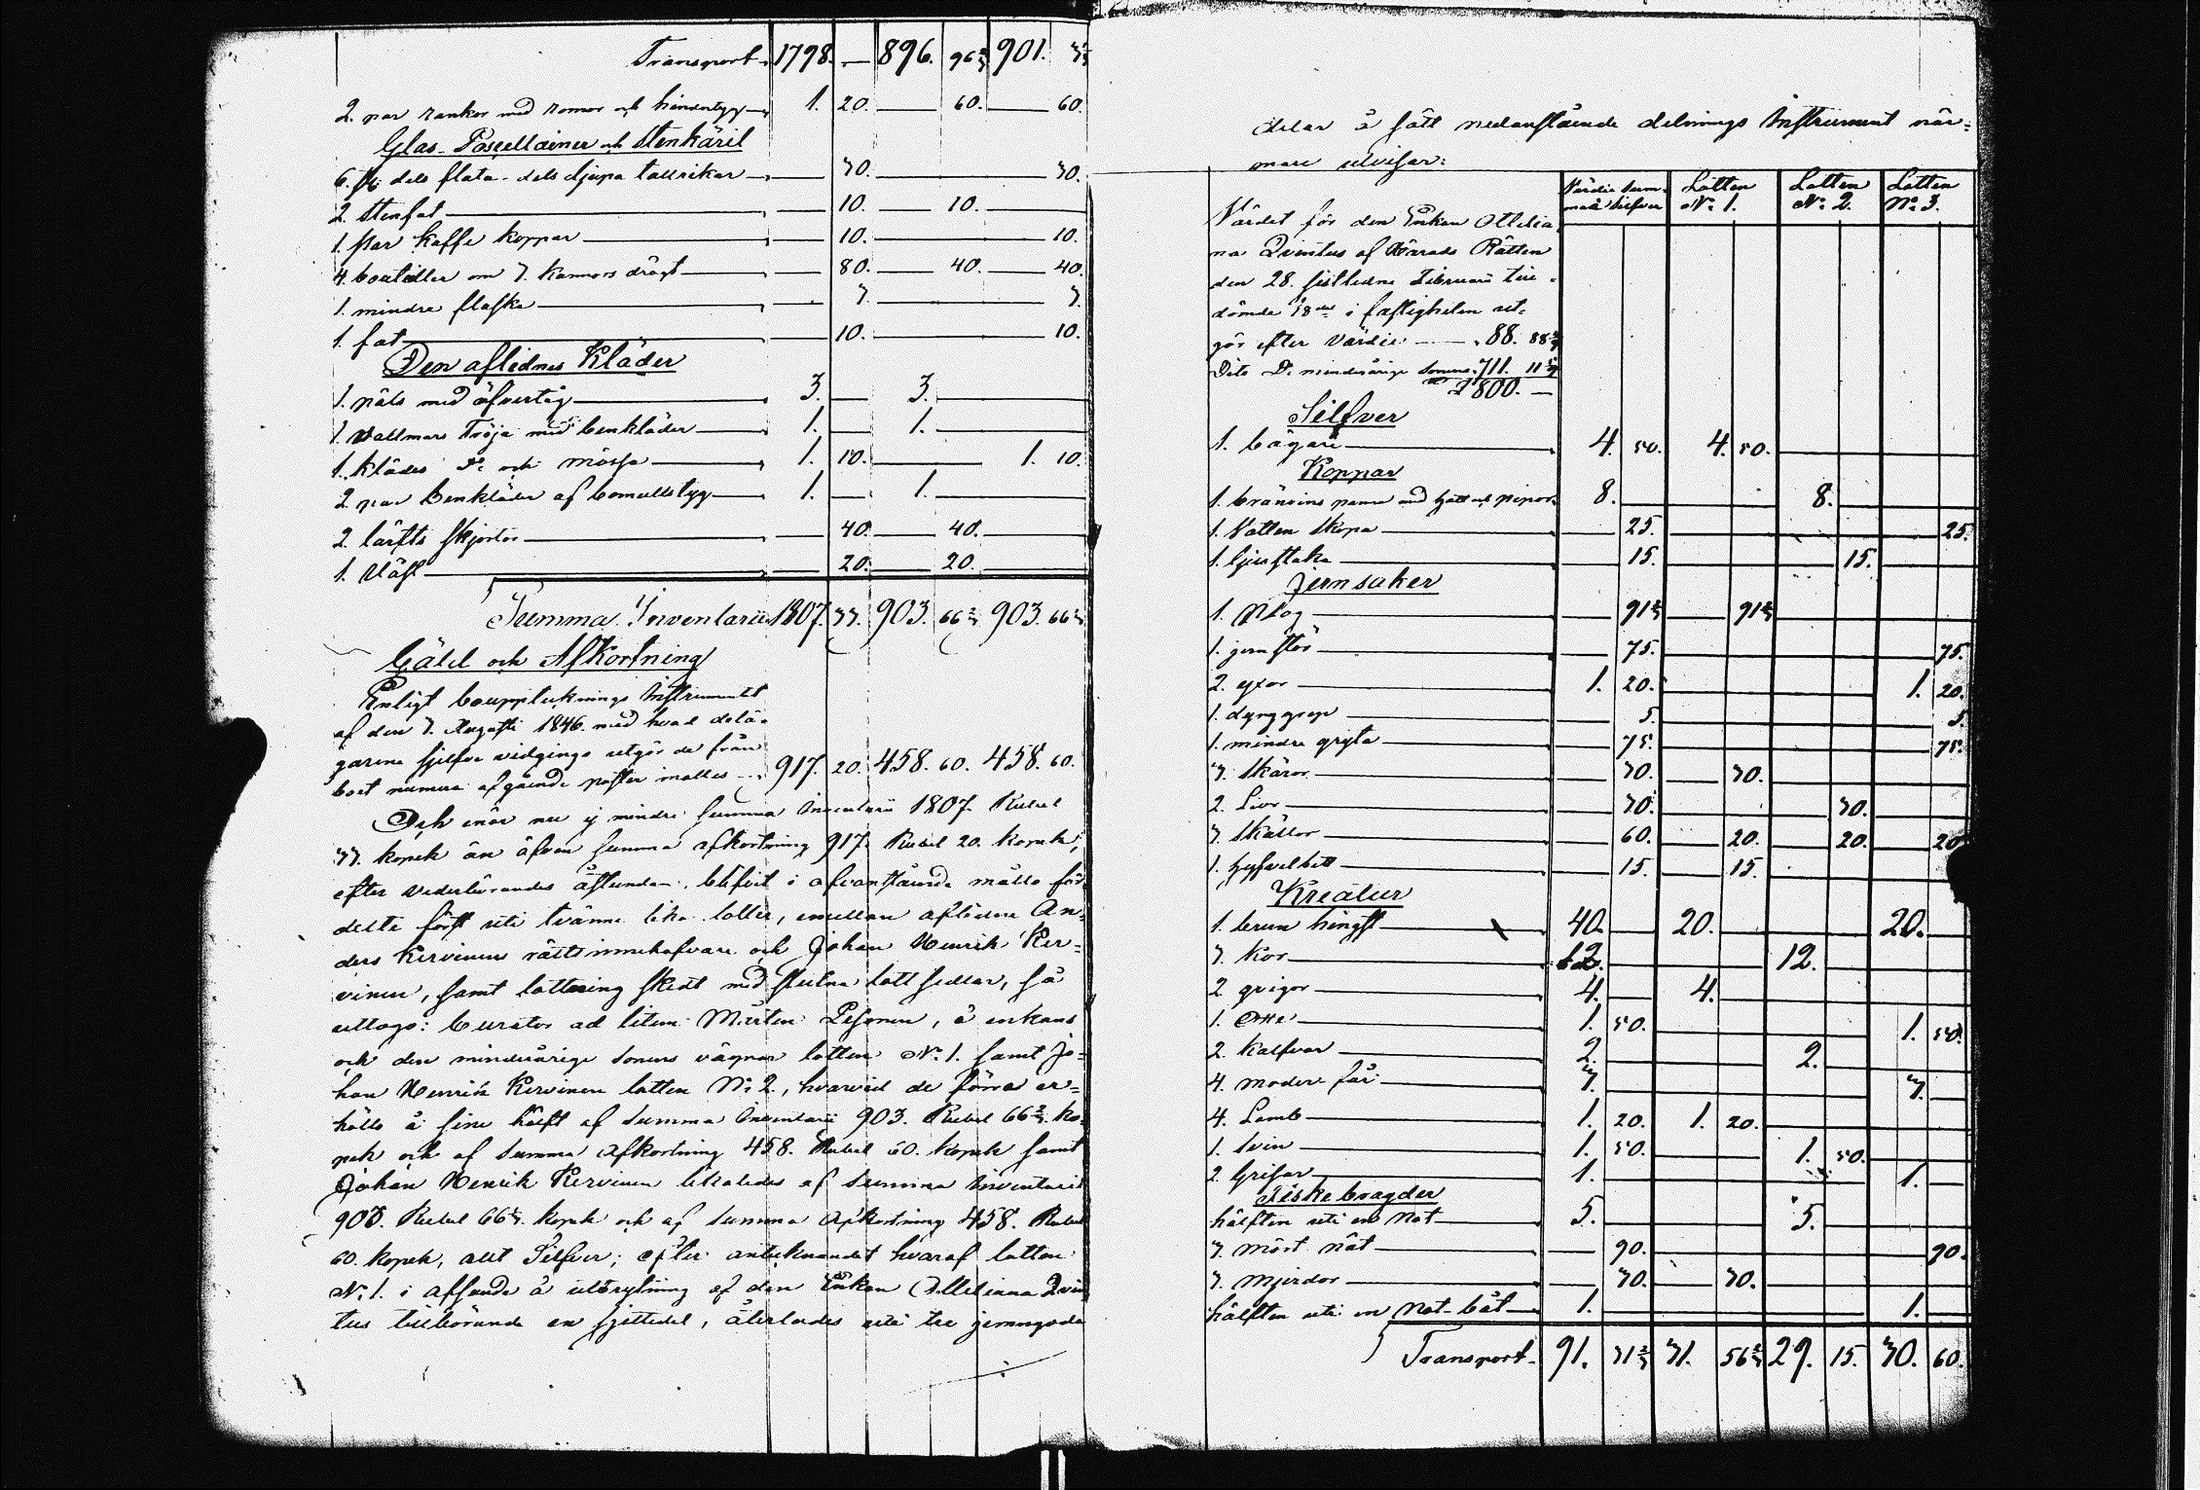 Transport 1798. — 896. 96 2/3 901. 3 1/3
2. par rankor med romor och hindertyg 1. 20. 60. 60.
Glas- Poscellainer och Stenkäril
6. st: dels flata- dels djupa tallrikar 30. 30.
2. Stenfat 10. 10.
1. par kaffe koppar 10. 10.
4. bouteiller om 3. kannors drägt 80. 40. 40.
1. mindre flaska 3. 3.
1. fat 10. 10.
Den aflednes Kläder
1. päls med öfvertÿg 3. — 3. —
1. Vallmars Tröja med benkläder 1. — 1. —
1. Klädes Do och mössa 1. 10. 1. 10.
2. par Benkläder af bomullstyg 1. — 1. —
2. lärfts skjortor 40. 40.
1. Väst 20. 20.
Summa Inventarii 1807. 33. 903. 66 2/3 903. 66 2/3
Gäld och Afkortning
Enligt bouppteknings Instrumentet
af den 7. Augusti 1846. med hvad delä-
garene sjelfve vidgingo utgör de från
boet numera afgående poster inalles 917. 20. 458. 60. 458. 60.
Och enär nu ej mindre Summa Inventarii 1807. Rubel
33. kopek än äfven Summa afkortning 917. Rubel 20. kopek,
efter vederbörandes åstundan blifvit i ofvanstående måtto för-
delte först uti tvänne lika lotter, emellan aflidne An-
ders Kervinens rättsinnehafvare och Johan Henrik Ker-
vinen, samt lottning skedt med slutna lottsedlar, så
uttogs: Curator ad litem Mårten Pesonen, å enkans
och den minderårige sonens vägnar lotten No 1. samt Jo-
han Henrik Kervinen lotten No 2., hvarvid de förra er-
höllo å sine hälft af Summa Inventarii 903. Rubel 66 2/3 ko-
pek och af Summa Afkortning 458. Rubel 60. kopek samt
Johan Henrik Kervinen likaledes af Summa Inventarii
903. Rubel 66 2/3. kopek och af Summa Afkortning 458. Rubel
60. kopek, allt Silfver; efter antecknandet hvaraf lotten
No 1. i afseende å utbrytning af den Enkan Ottiliana Qvin-
tus tillhörande en sjettedel, återlades uti tre jemngoda
delar å sätt nedanstående delnings Instrument när-
mare utvisar:
Värdie Summa i Silfver Lotten No 1. Lotten No 2. Lotten No 3.
Värdet för den Enkan Ottilia-
na Qvintus af Härads Rätten
den 28. sistledne Februarii till-
dömde 1/8 del i fastigheten ut-
gör efter värdie 88. 88 8/9
Dito Do minderårige sonens 711. 11 1/9
R 800. —
Silfver
1. bägare 4. 50. 4. 50.
Koppar
1. bränvins panna med hatt och pipor 8. 8.
1. Vatten Skopa 25. 25.
1. ljusstaka 15. 15.
Jernsaker
1. Plog 91 2/3 91 2/3
1. jernstör 75. 75.
2. yxor 1. 20. 1. 20.
1. dynggrep 5. 5.
1. mindre gryta 75. 75.
3. Skäror 30. 30.
2. Liar 30. 30.
3. Skällor 60. 20. 20. 20.
1. hyfvelbett 15. 15.
Kreatur
1. brun hingst 40. 20. 20.
3. Kor 12. 12.
2. qvigor 4. 4.
1. Oxe 1. 50. 1. 50.
2. Kalfvar 2. 2.
4. moder får 3. 3.
4. Lamb 1. 20. 1. 20.
1. Svin 1. 50. 1. 50.
2. Grisar 1. 1.
Fiske bragder
hälften uti en Not 5. 5.
3. mört nät 90. 90.
3. Mjerdor 30. 30.
hälften uti en Not-båt 1. 1.
Transport 91. 31 2/3 31. 56 2/3 29. 15. 30. 60.